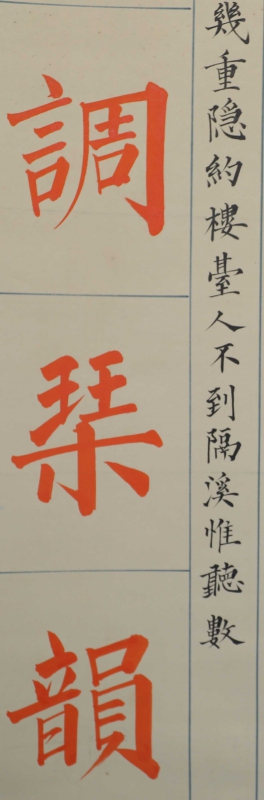 幾重隱約樓臺人不到隔溪惟聽數
調琹韻